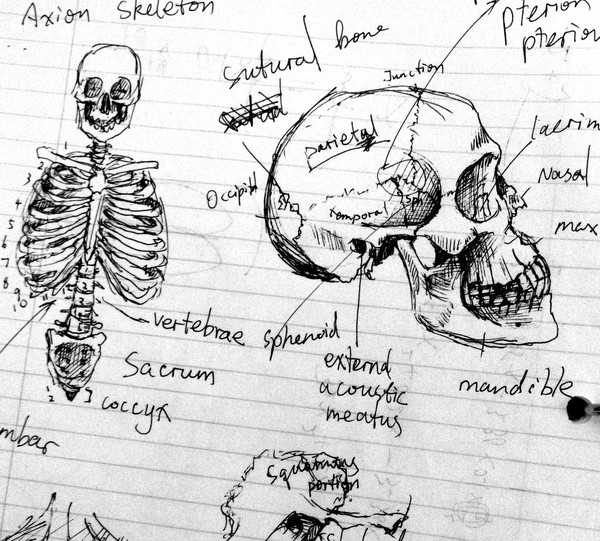 Axion Skeleton
pterion
pterion
sutural bone
Junction
parietal
lacrim
Nasal
Occipit
sph
Tempora
max
1
2
3
4
5
6
7
8
9
10
vertebrae
sphenoid
external
acoustic
meatus
mandible
Sacrum
coccyx
mbar
squamous
portion